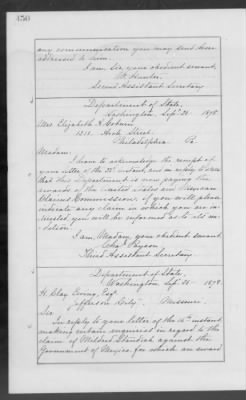 450
any communication you may send here
addressed to him.
I am, Sir, your obedient servant,
W. Hunter.
Second Assistant Secretary
Department of State,
Washington, Sept. 25. 1878
Mrs Elizabeth
1211. Arch Street.
Philadelphia. Pa.
Madam:
I have to acknowledge the receipt of
your letter of the 22d instant, and in reply to say
that this Department is now paying the
awards of the United States and Mexican
Claims Commission. If you will please
indicate any claim in which you are in-
terested, you will be informed as to its con-
dition.
I am, Madam, your obedient servant.
Chas Payson
Third Assistant Secretary
Department of State.
Washington Sept. 25 1878.
H. Clay Ewing, Esqr
Jefferson City. Missouri.
Sir:
In reply to your letter of the instant
making certain inquiries in regard to the
claim of Mildred Standish against the
Government of Mexico, for which an award